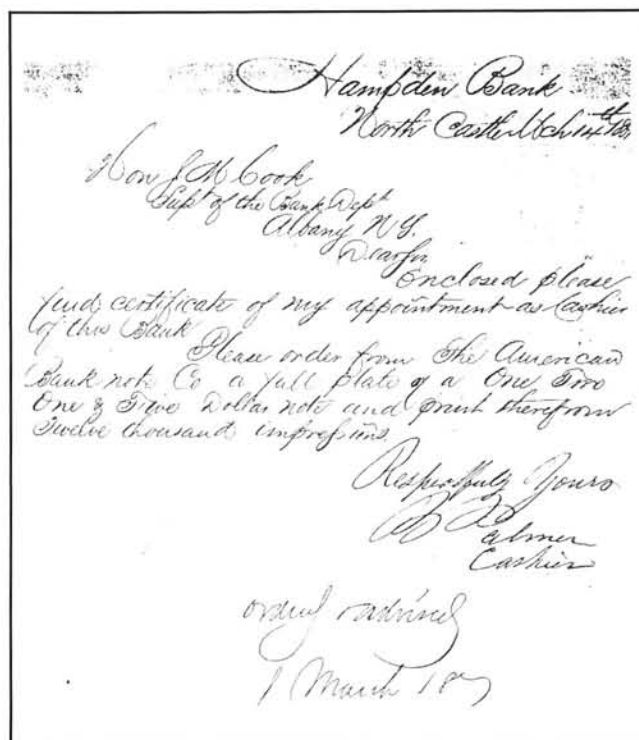 Hampden Bank
North Castle Mch 14th
Hon J M Cook
Supt of the Bank Dept
Albany N Y.
Dear Sir
Enclosed please
find certificate of my appointment as Cashier
of this Bank
Please order from The American
Bank note Co a full plate of a One Two
One & Two Dollar note and print therefrom
Twelve thousand impressions.
Respectfully Yours
Palmer
Cashier
March 18